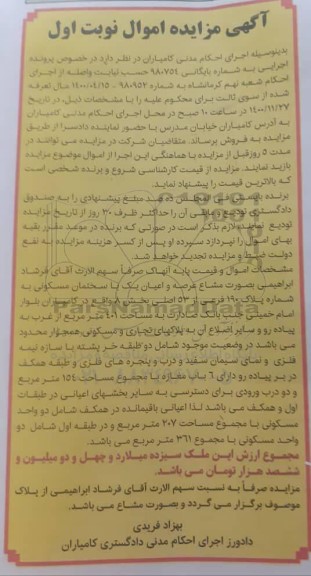 آگهی مزایده اموال نوبت اول
بدینوسیله اجرای احکام مدنی کامیاران در نظر دارد در خصوص پرونده
اجرایی به شماره بایگانی ۹۸۰۷۵۴ حسب نیابت واصله از اجرای
احکام شعبه نهم کرمانشاه به شماره ۹۸۰۹۵۲ ـ ۱۴۰۰/۰۴/۱۵ مال تعرفه
شده از سوی ثالث برای محکوم علیه را با مشخصات ذیل، در تاریخ
۱۴۰۰/۱۱/۲۷ در ساعت ۱۰ صبح در محل اجرای احکام مدنی کامیاران
به آدرس کامیاران خیابان مدرس با حضور نماینده دادسرا از طریق
مزایده به فروش برساند. متقاضیان شرکت در مزایده می توانند در
مدت ۵ روز قبل از مزایده با هماهنگی این اجرا از اموال موضوع مزایده
بازدید نمایند. مزایده از قیمت کارشناسی شروع و برنده شخصی است
که بالاترین قیمت را پیشنهاد نماید.
برنده بایستی فی المجلس ده صد مبلغ پیشنهادی را به صندوق
دادگستری تودیع و مابقی آن را حداکثر ظرف ۳۰ روز از تاریخ مزایده
تودیع نماید. لازم بذکر است در صورتی که برنده در موعد مقرر بقیه
بهای اموال را نپردازد سپرده او پس از کسر هزینه مزایده به نفع
دولت ضبط و مزایده تجدید خواهد شد.
مشخصات اموال و قیمت پایه آنها: صرفاً سهم الارث آقای فرشاد
ابراهیمی بصورت مشاع عرصه و اعیان یک باب ساختمان مسکونی به
شماره پلاک ۱۹۰ فرعی از ۵۳ اصلی بخش ۸ واقع در کامیاران بلوار
امام خمینی جنب بانک تجارت با مساحت ۲۰۸ متر مربع از غرب به
پیاده رو و سایر اضلاع آن به پلاکهای تجاری و مسکونی همجوار محدود
می باشد در وضعیت موجود شامل دو طبقه خر پشته با سازه نیمه
فلزی و نمای سیمان سفید و درب و پنجره های فلزی و طبقه همکف
در بر پیاده رو دارای ۶ باب مغازه با مجموع مساحت ۱۵۴ متر مربع
و دو درب ورودی برای دسترسی به سایر بخشهای اعیانی در طبقات
اول و همکف می باشد لذا اعیانی باقیمانده در همکف شامل دو واحد
مسکونی با مجموع مساحت ۲۰۷ متر مربع و در طبقه اول شامل دو
واحد مسکونی با مجموع ۳۶۱ متر مربع می باشد.
مجموع ارزش این ملک سیزده میلارد و چهل و دو میلیون و
ششصد هزار تومان می باشد.
مزایده صرفاً به نسبت سهم الارث آقای فرشاد ابراهیمی از پلاک
موصوف برگزار می گردد و بصورت مشاع می باشد.
بهزاد فریدی
دادورز اجرای احکام مدنی دادگستری کامیاران